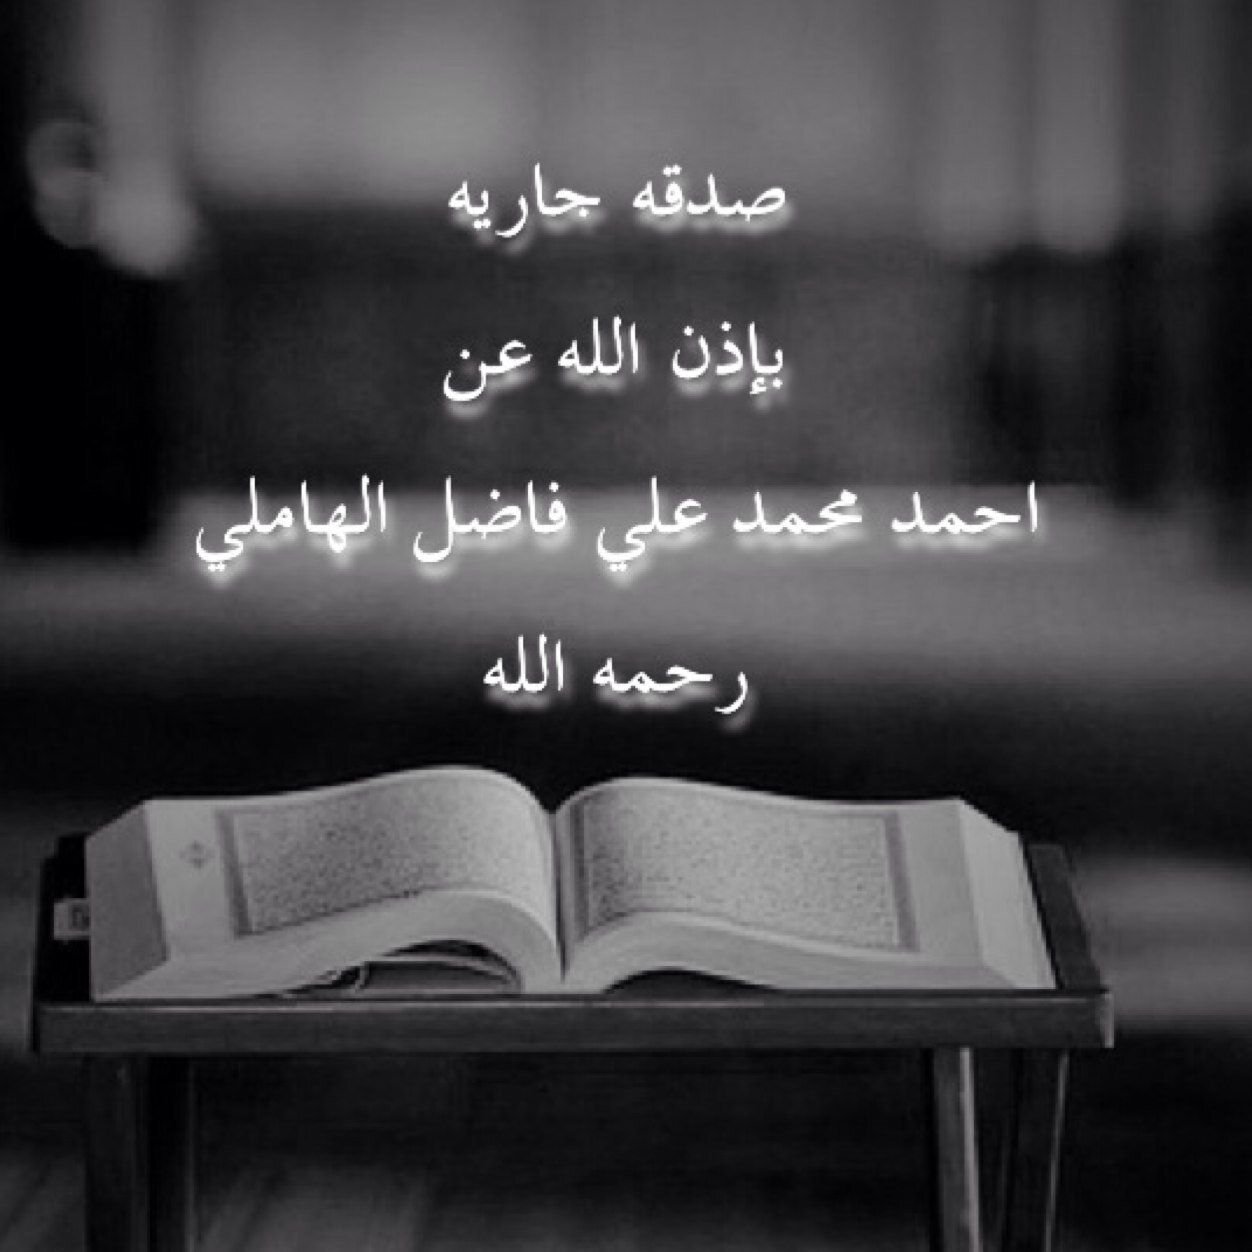 صدقه جاريه
بإذن الله عن
احمد محمد علي فاضل الهاملي
رحمه الله